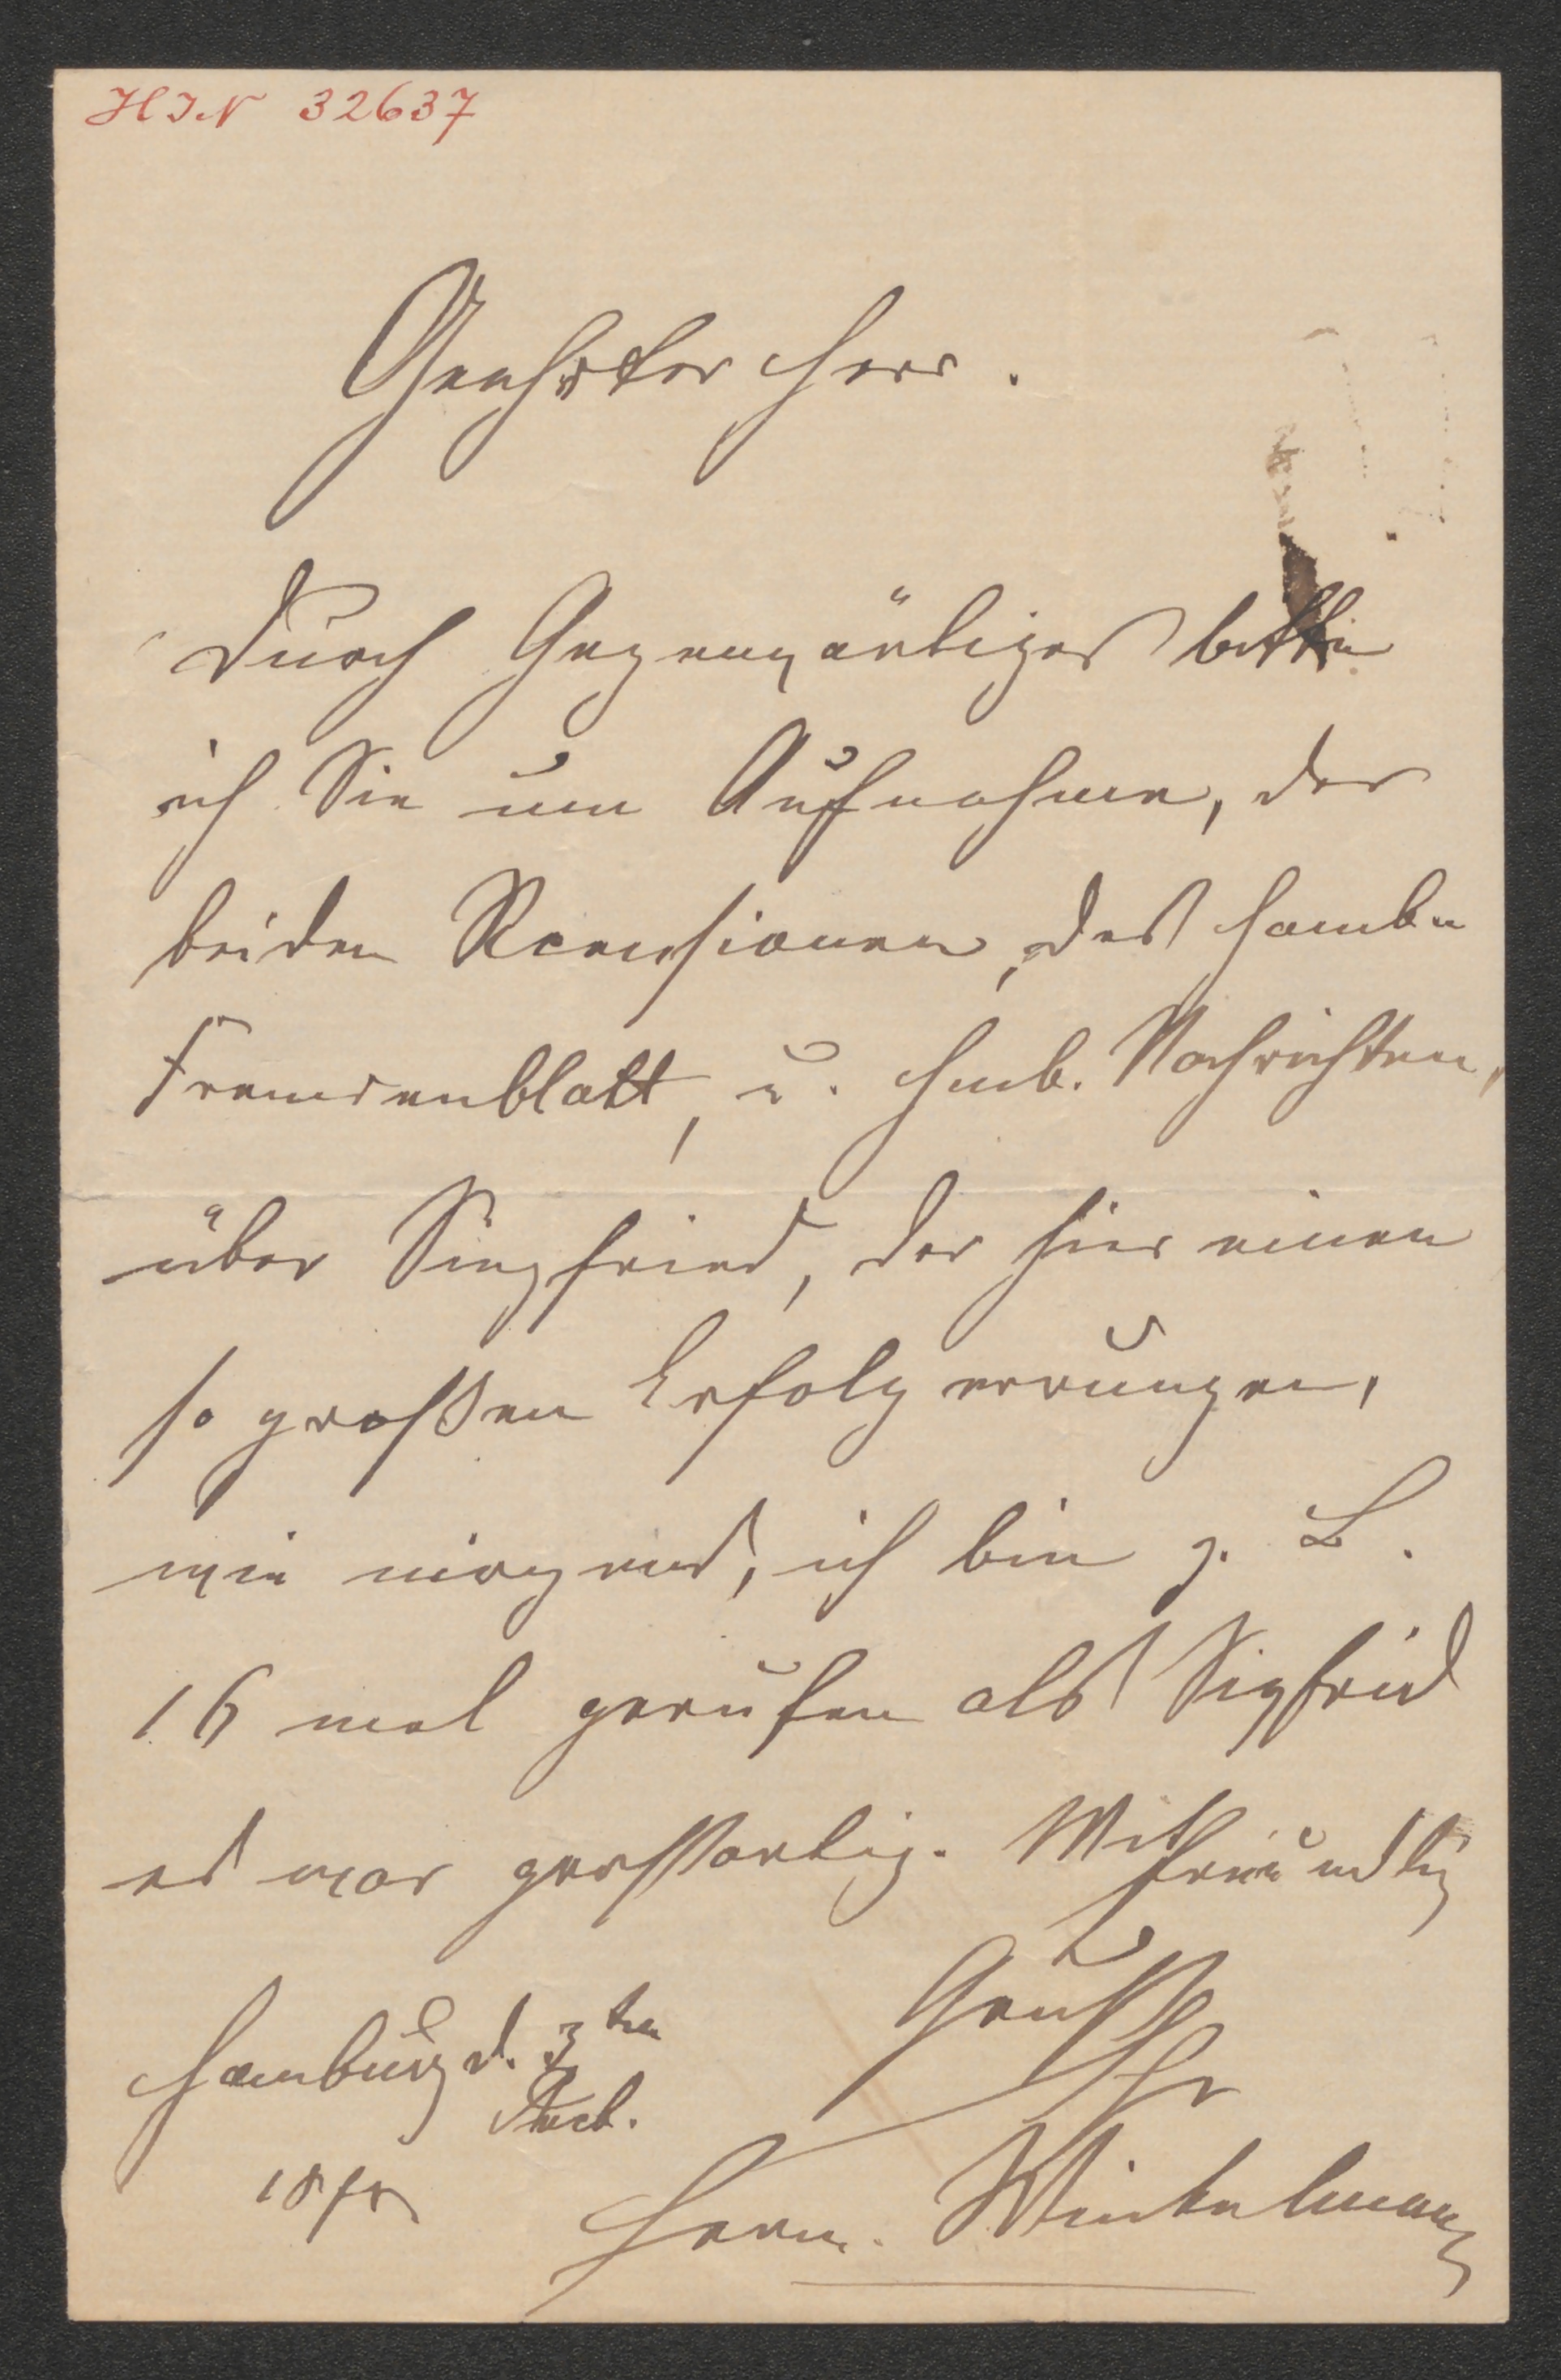 HIN 32637
Geehrter Herr.
Durch Gegenwärtiges bitte
ich Sie um Aufnahme, der
beiden Recensionen, des Hamb.
Fremdenblatt, u. Hmb. Nachrichten,
über Siegfried, der hier einen
so großen Erfolg errungen,
wie nirgend, ich bin z. B.
16 mal gerufen als Sigfrid
es war großartig. Mit
freundlig
Gruß
Ihr
Hamburg d. 3ten
187
Herm. Winkelmann